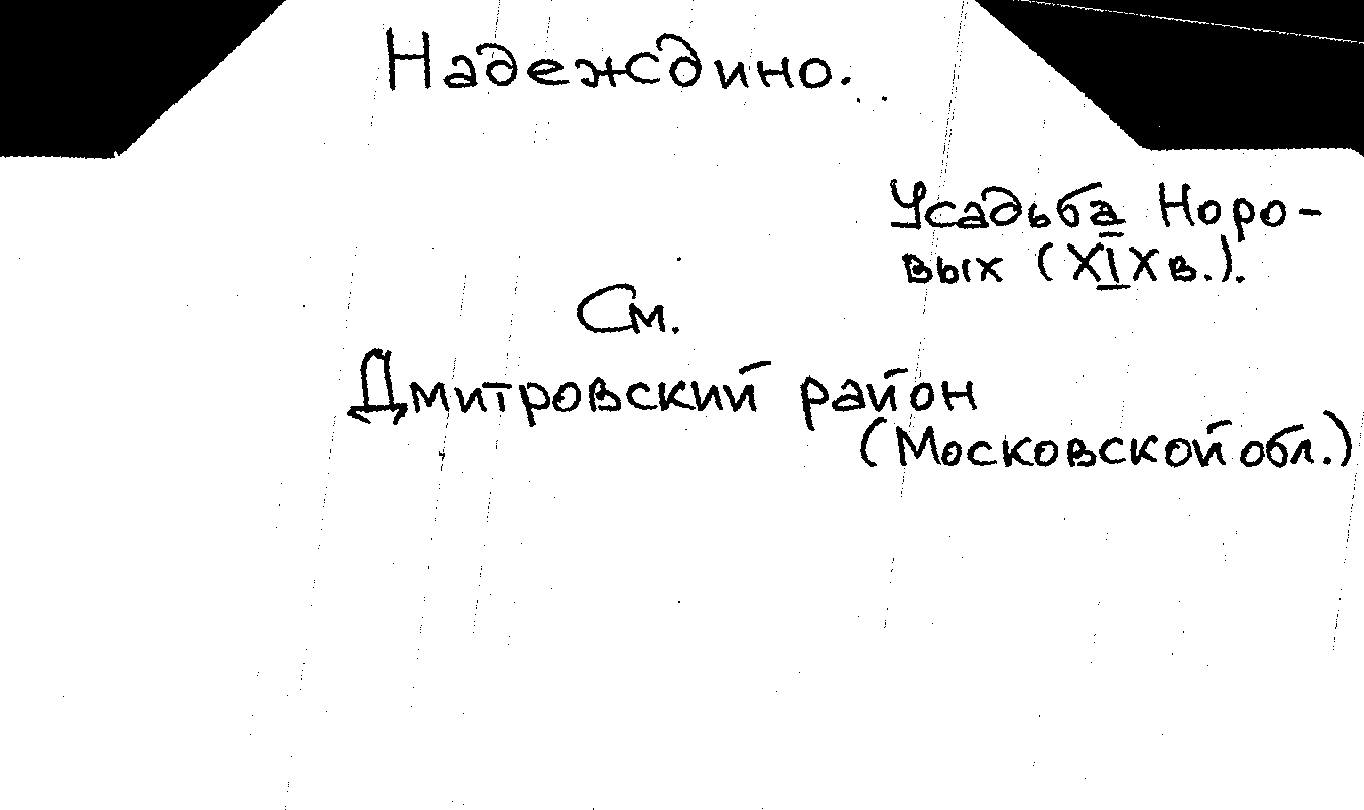 Надеждино.
Усадьба Норо-
вых (XIX в.).
См.
Дмитровский район
(Московской обл.)